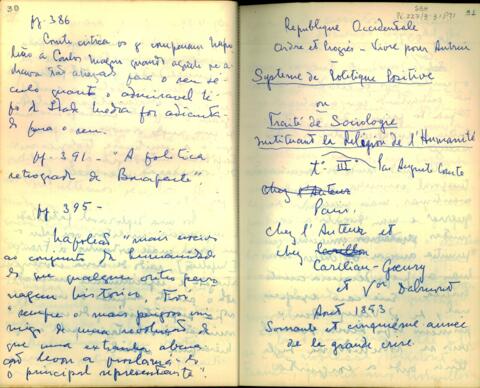 30
pg. 386
Comte critica os q comparam Napo-
leão a Carlos Magno quando aquele se a-
chava tão atrazado para o seu se-
culo quanto o admiravel ti-
po da Idade Media foi adianta-
do para o seu.
pg. 391 - "A politica
retrograda de Bonaparte".
pg. 395 -
Napoleão "mais nocivo
ao conjunto da humanidade
do que qualquer outro perso-
nagem historico. Foi
"sempre o mais perigoso ini-
migo de uma revolução de
que uma extranha aberra-
ção levou a proclamá-lo
o principal representante".
31
Republique Occidentale
Ordre et Progrès - Vivre pour Autrui
Systeme de Politique Positive
ou
Traité de Sociologie
instituant la Réligion de l'Humanité
t. III. Par Auguste Comte
chez l'Auteur
Paris.
chez l'Auteur et
chez
Carilian-Goeury
et Vor Dalmont
Août 1853
Soixante et cinquième année
de la grande crise.